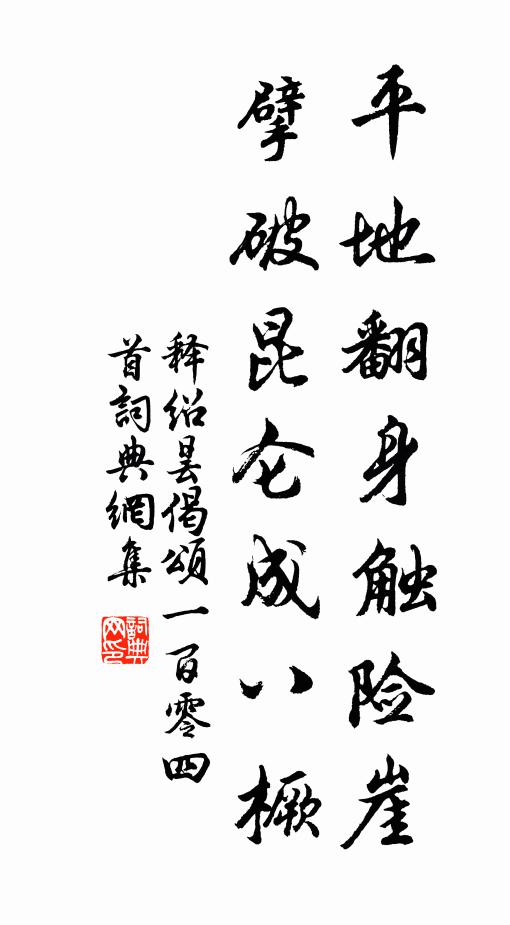 平地翻身触险崖
擘破昆仑成八橛
释绍昙偈頌一百零四
首詞典網集
詞典网印